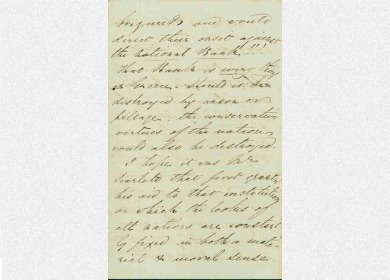 and would
direct their onset against
the national Bank!!!
that Bank is very
Should it be
destroyed by arson or
pillage, the conservative
virtues of the nation
would also be destroyed.
I hope it was Mr
Scarlett that first
his aid to that institution
on which the looks of
all nations are constant
ly fixed in both a mate-
rial & moral sense